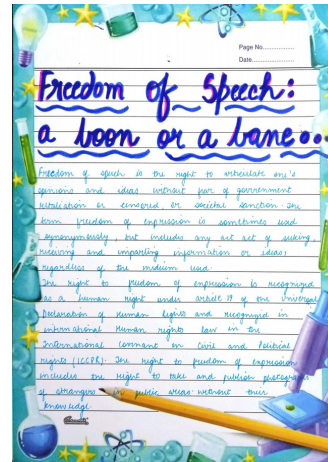 Page No.................
Date.....................
Freedom of Speech:
a boon or a bane...
Freedom of speech is the right to articulate one's
opinions and ideas without fear of government
retaliation or censored, or societal sanction. The
term freedom of expression is sometimes used
synonymously, but includes any act act of seeking,
receiving and imparting information or ideas,
regardless of the medium used.
The right to freedom of expression is recognized
as a human right under article 19 of the Universal
Declaration of Human Rights and recognized in
international Human rights law in the
International Covenant on Civil and Political
rights (ICCPR). The right to freedom of expression
includes the right to take and publish photographs
of strangers in public areas without their
knowledge.